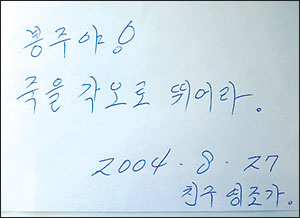 봉주야!
죽을 각오로 뛰어라.
2004. 8. 27
친구 영조가.